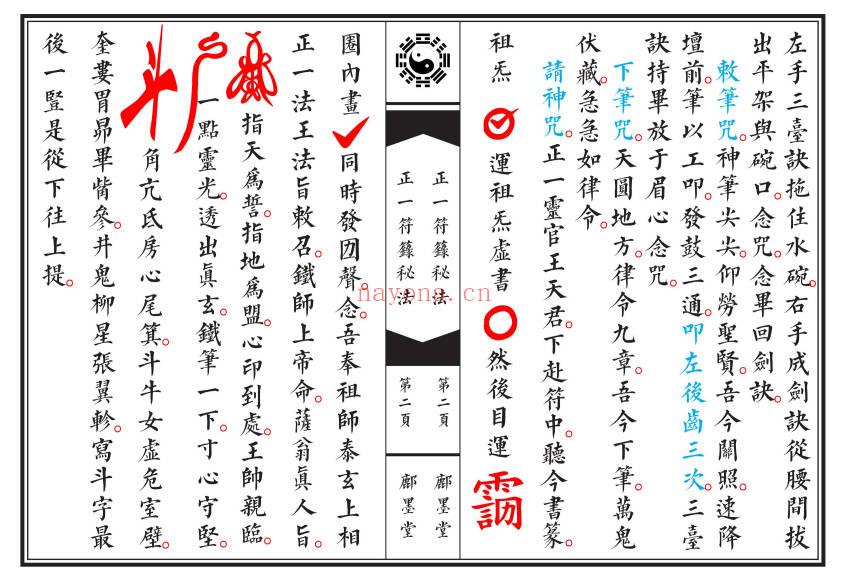 左手三臺訣拖住水碗。右手成劍訣從腰間拔
出平架與碗口。念咒。念畢回劍訣。
敕筆咒。神筆尖尖。仰勞聖賢。吾今關照。速降
壇前。筆以工叩。發鼓三通。叩左後齒三次。三臺
訣持畢放于眉心念咒。
下筆咒。天圓地方。律令九章。吾今下筆。萬鬼
伏藏。急急如律令。
請神咒。正一靈官王天君。下赴符中。聽今書篆。
祖炁 運祖炁虛書 然後目運
正一符籙秘法 第二頁 鄜墨堂
正一符籙秘法 第二頁 鄜墨堂
圈內畫 同時發囙聲。念。吾奉祖師泰玄上相
正一法王法旨敕召。鐵師上帝命。薩翁眞人旨。
指天爲誓。指地爲盟。心印到處。王帥親臨。
一點靈光。透出眞玄。鐵筆一下。寸心守堅。
角亢氐房心尾箕。斗牛女虛危室壁。
奎婁胃昴畢觜參。井鬼柳星張翼軫。寫斗字最
後一豎是從下往上提。
nayona.cn